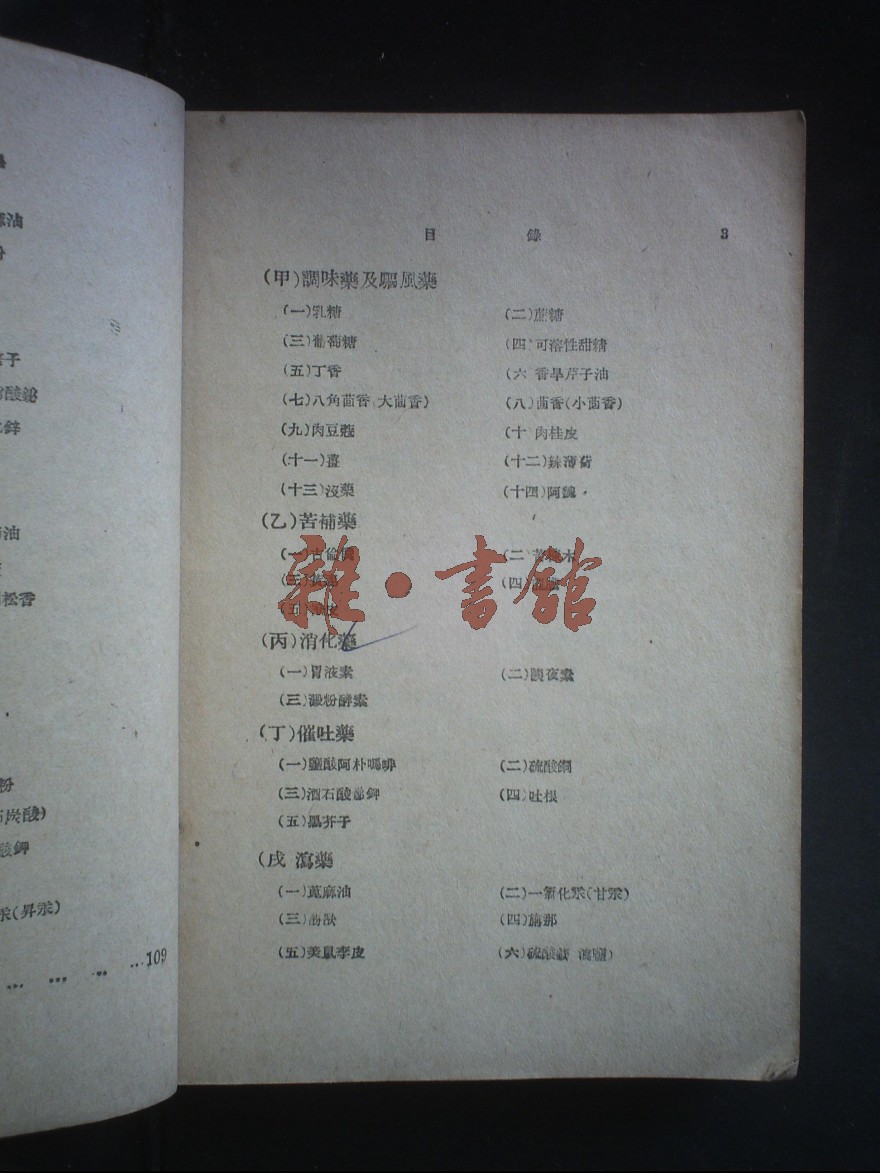 油
子
酸鉍
鋅
油
松香
粉
炭酸)
酸鉀
汞(昇汞)
... ... ... ...109
目 錄 3
(甲)調味藥及驅風藥
(一)乳糖 (二)蔗糖
(三)葡萄糖 (四)可溶性甜精
(五)丁香 (六 香旱芹子油
(七)八角茴香(大茴香) (八)茴香(小茴香)
(九)肉豆蔻 (十 肉桂皮
(十一)薑 (十二)綠薄荷
(十三)沒藥 (十四)阿魏
(乙)苦補藥
(一)古 (二 苦 木
(三) (四
(五) 皮
雜·書館
(丙)消化藥
(一)胃液素 (二)胰液素
(三)澱粉酵素
(丁)催吐藥
(一)鹽酸阿朴嗎啡 (二)硫酸銅
(三)酒石酸銻鉀 (四)吐根
(五)黑芥子
(戌 瀉藥
(一)蓖麻油 (二)一氯化汞(甘汞)
(三) (四)旃那
(五)美鼠李皮 (六)硫酸鎂 瀉鹽)